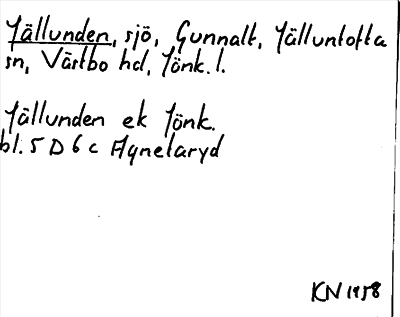 Jällunden, sjö, Gunnalt, Jälluntofta
sn, Västbo hd, Jönk. l.
Jällunden ek Jönk.
bl. 5 D 6 c Agnetaryd
KN 1958